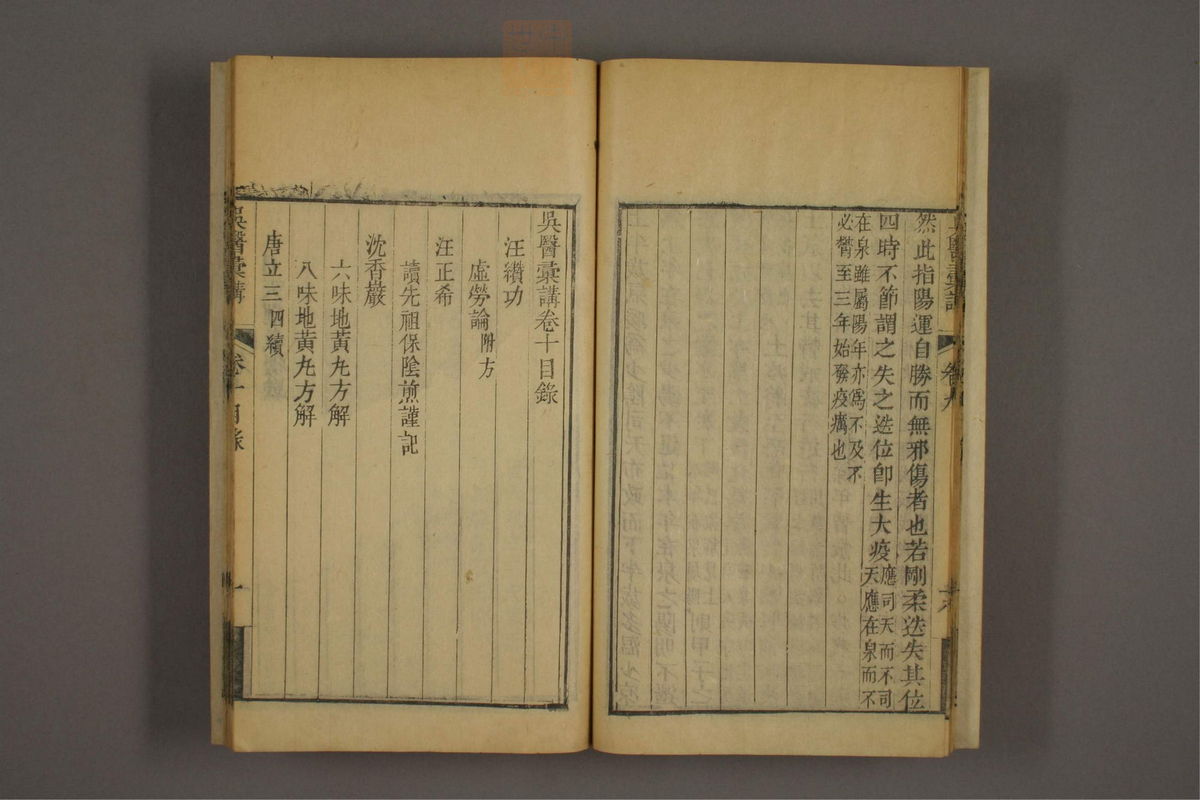 然此指陽運自勝而無邪傷者也若剛柔迭失其位
四時不節謂之失之迭位卽生大疫應司天而不司天應在泉而不
在泉雖屬陽年亦爲不及不必膂至三年始發疫癘也
吳醫彙講
卷九
吳醫彙講卷十目錄
汪纘功
虛勞論附方
汪正希
讀先祖保陰煎謹記
沈香巖
六味地黃丸方解
八味地黃丸方解
唐立三四續
吳醫彙講
卷十目錄
一